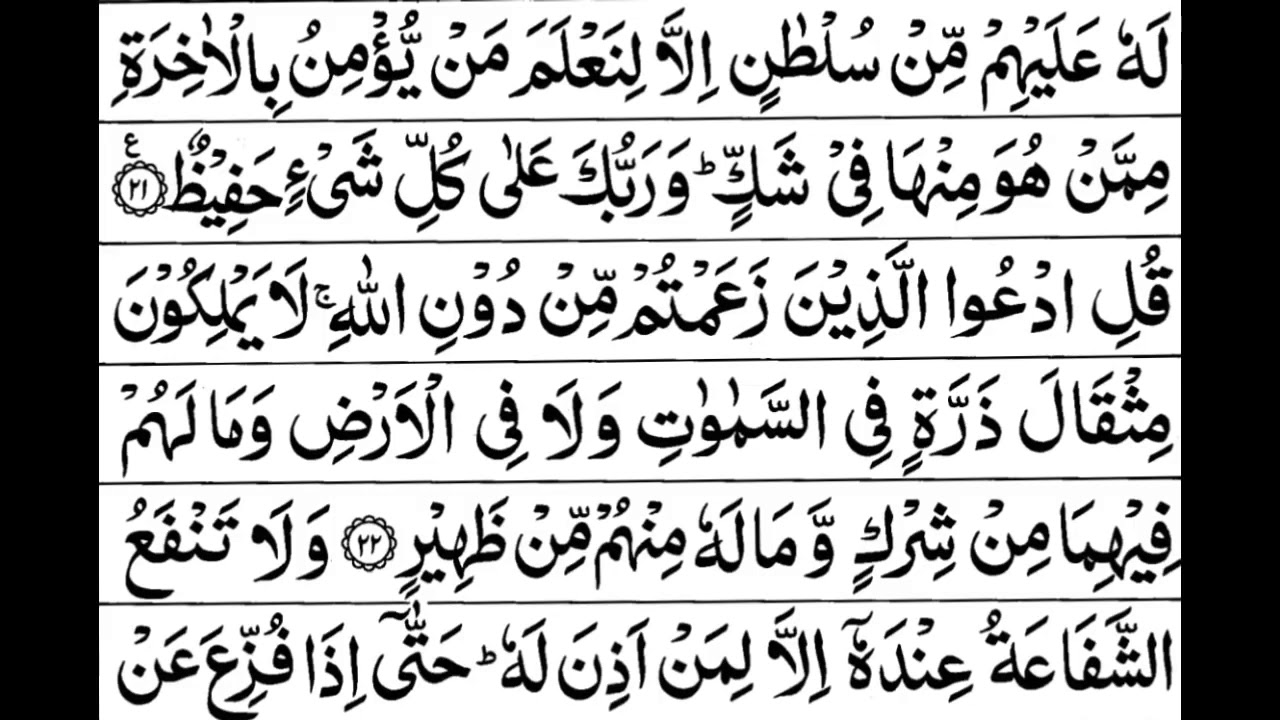 لَهٗ عَلَيْهِمْ مِّنْ سُلْطٰنٍ اِلَّا لِنَعْلَمَ مَنْ يُّؤْمِنُ بِالْاٰخِرَةِ
مِمَّنْ هُوَ مِنْهَا فِيْ شَكٍّ ؕ وَرَبُّكَ عَلٰى كُلِّ شَيْءٍ حَفِيْظٌ ۧ ﴿۲۱﴾
قُلِ ادْعُوا الَّذِيْنَ زَعَمْتُمْ مِّنْ دُوْنِ اللّٰهِ ۚ لَا يَمْلِكُوْنَ
مِثْقَالَ ذَرَّةٍ فِي السَّمٰوٰتِ وَلَا فِي الْاَرْضِ وَمَا لَهُمْ
فِيْهِمَا مِنْ شِرْكٍ وَّمَا لَهٗ مِنْهُمْ مِّنْ ظَهِيْرٍ ﴿۲۲﴾ وَلَا تَنْفَعُ
الشَّفَاعَةُ عِنْدَهٗٓ اِلَّا لِمَنْ اَذِنَ لَهٗ ؕ حَتّٰٓى اِذَا فُزِّعَ عَنْ